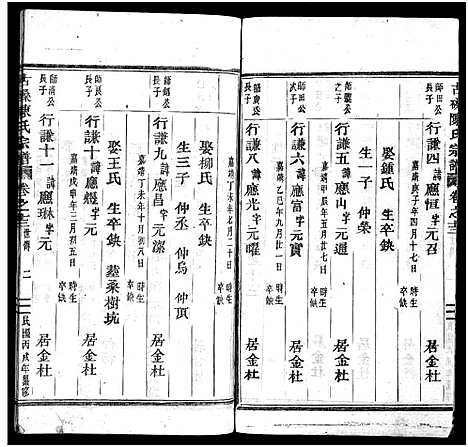 陳氏宗譜 卷之三
師田公 長子 行謙四 諱應恒 字元召 居金杜
嘉靖庚子年四月十七日 時生 卒缺
娶鍾氏 生卒缺
生一子 仲榮
之子 行謙五 諱應山 字元
嘉靖甲辰年 月初五日 時生 卒缺
師田公 行謙六 諱應富 字元實
嘉靖乙巳年九月廿一日 時生 卒缺
長子 行謙八 諱應光 字元曜 居金杜
嘉靖丁未年七月二十日 時生 卒缺
娶柳氏 生卒缺
生三子 仲丞 仲烏 仲頂
長子 行謙九 諱應昌 字元 居金杜
嘉靖丁未年十月初八日 時生 卒缺
娶王氏 生卒缺 葬桑樹坑
師良公 長子 行謙十 諱應 字元 居金杜
嘉靖戊申年三月初五日 時生 卒缺
師清公 長子 行謙十一 諱應琳 字元 居金杜
陳氏宗譜 卷之三 世傳 二 民國丙戌年重修